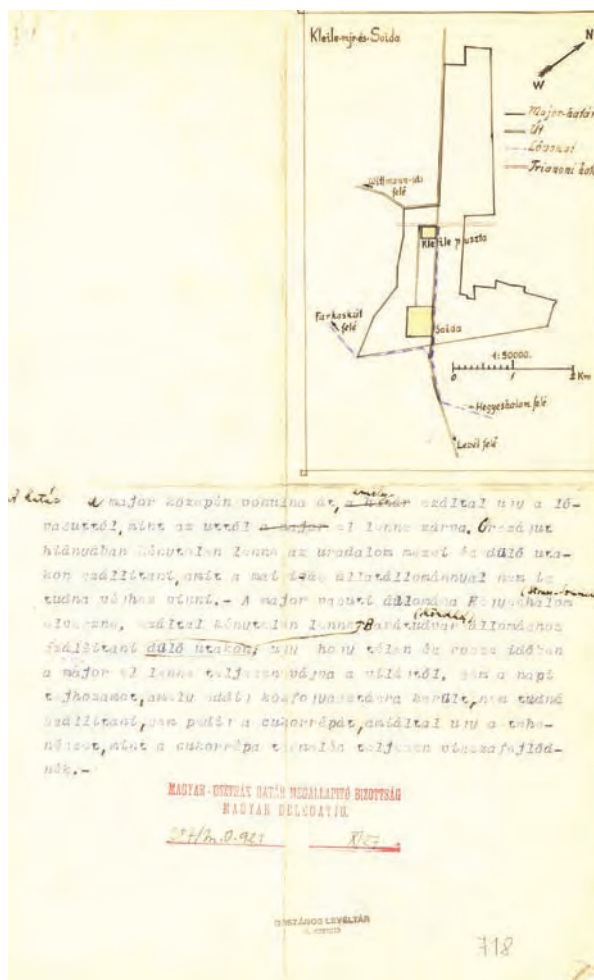 Kleile-mjr-és-Soida
N
W
Major-határ
Út
Lóvasut
Trianoni hat
Wittmann-uti
felé
Kleile puszta
Farkaskút
felé
Soida
1:50000.
0 1 2 Km
Hegyeshalom felé
Levél felé
A határ a major közepén vonulna át, amely ezáltal ugy a ló-
vasuttól, mint az uttól el lenne zárva. Országut
hiányában kénytelen lenne az uradalom mezei és dülő uta-
kon szállitani, amit a mai igás állatállománnyal nem is
tudna véghez vinni.- A major vasuti állomása Hegyeshalom
elveszne, ezáltal kénytelen lenne Barátudvar állomáshoz
szállitani dülő utakon, ugy hogy télen és rossz időben
a major el lenne teljesen vágva a világtól, sem a napi
tejhozamot, amely eddig közfogyasztásra került, nem tudná
szállitani, sem pedig a cukorrépát, miáltal ugy a tehe-
nészet, mint a cukorrépa termelés teljesen visszafejlőd-
nék.-
MAGYAR-OSZTRÁK HATÁR MEGÁLLAPITÓ BIZOTTSÁG
MAGYAR DELEGATIO.
X/27
ORSZÁGOS LEVÉLTÁR
718